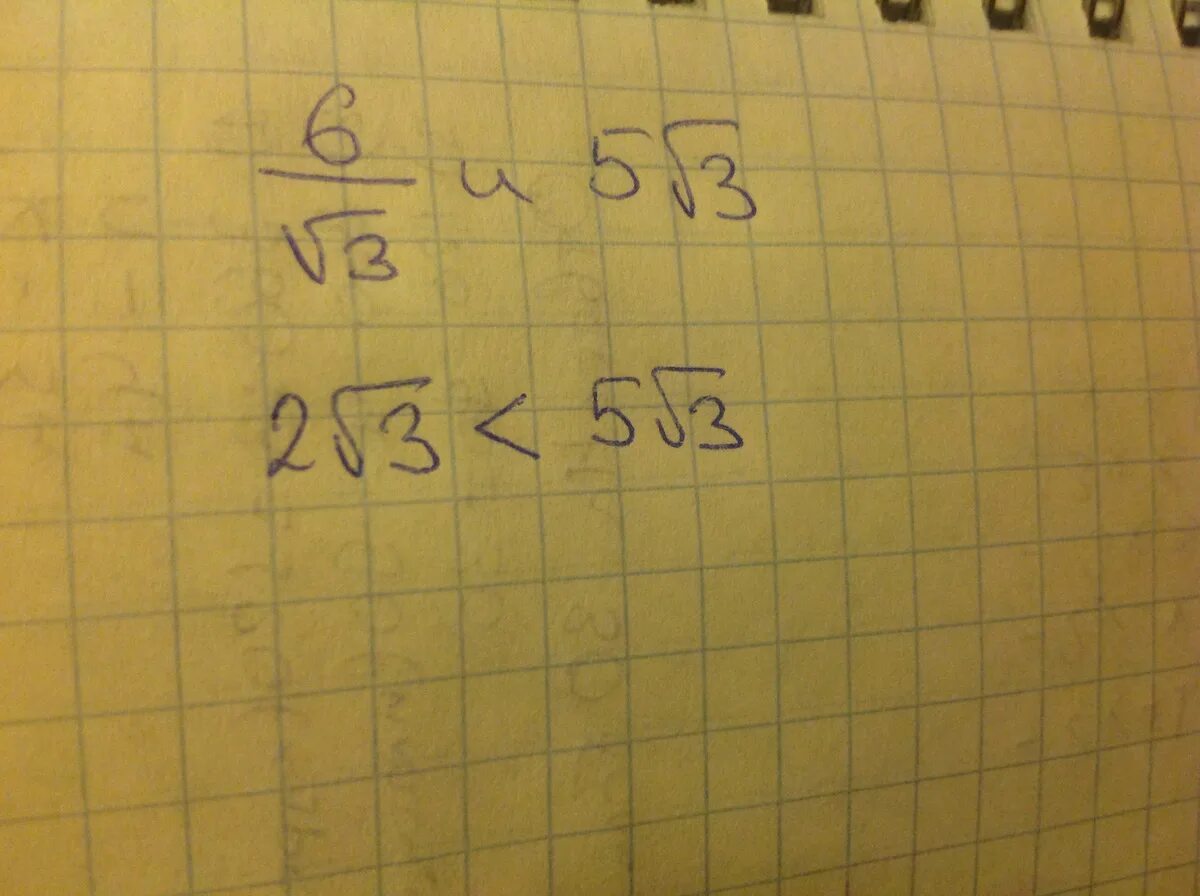 6/√3 и 5√3
2√3 < 5√3